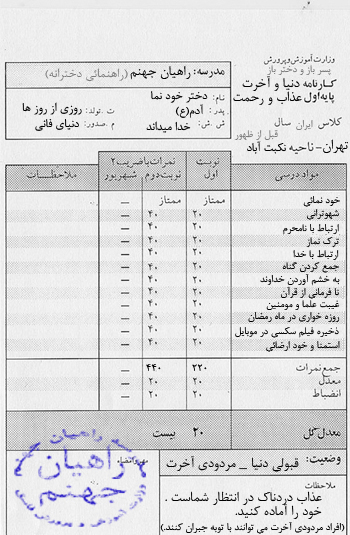 وزارت آموزش و پرورش
پسر باز و دختر باز
کارنامه دنیا و آخرت
پایه اول عذاب و رحمت
کلاس ایران سال قبل از ظهور
تهران - ناحیه نکبت آباد
مدرسه: راهیان جهنم (راهنمائی دخترانه)
نام: دختر خود نما
پدر: آدم(ع) ت. تولد: روزی از روز ها
ش. ش: خدا میداند م. صدور: دنیای فانی
مواد درسی نوبت اول نمرات باضریب ۲ نوبت دوم شهریور ملاحظات
خود نمائی ممتاز ممتاز —
شهوترانی ۲۰ ۴۰ —
ارتباط با نامحرم ۲۰ ۴۰ —
ترک نماز ۲۰ ۴۰ —
ارتباط با خدا ۲۰ ۴۰ —
جمع کردن گناه ۲۰ ۴۰ —
به خشم آوردن خداوند ۲۰ ۴۰ —
نا فرمانی از قرآن ۲۰ ۴۰ —
غیبت علما و مومنین ۲۰ ۴۰ —
روزه خواری در ماه رمضان ۲۰ ۴۰ —
ذخیره فیلم سکسی در موبایل ۲۰ ۴۰ —
استمنا و خود ارضائی ۲۰ ۴۰ —
جمع نمرات ۲۲۰ ۴۴۰ —
معدل ۲۰ ۲۰ —
انضباط ۲۰ ۲۰ —
معدل کل ۲۰ بیست
وضعیت: قبولی دنیا _ مردودی آخرت
مهر و امضاء
ملاحظات
عذاب دردناک در انتظار شماست.
خود را آماده کنید.
(افراد مردودی آخرت می توانند با توبه جبران کنند.)
راهیان
جهنم